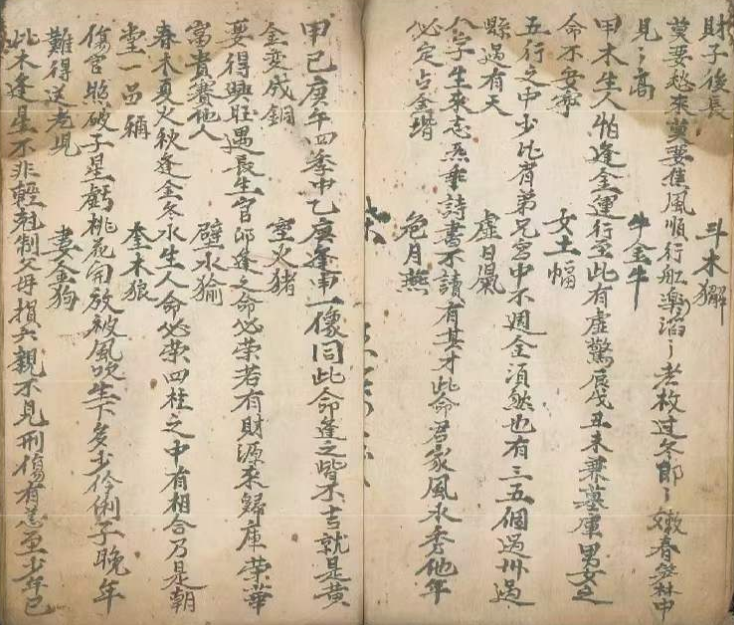 財子後長　斗木獬
莫要愁來莫要焦風順行舡樂滔〻老枝过冬郎〻嫩春笋林中
見〻高　牛金牛
甲木生人怕逢金運行至此有虛驚辰戌丑未兼墓庫男女之
命不安寧　女土蝠
五行之中少比肩弟兄宮中不週全須然也有三五個過州過
縣過有天　虛日鼠
人字生來志氣乖詩書不讀有其才此命君家風水秀他年
必定占金堦　危月燕
甲己庚午四季中乙庚逢申一像同此命逢之皆不吉就是黃
金变成銅　室火猪
要得興旺遇長生官印逢之命必荣若有財源來歸庫荣華
富貴賽他人　壁水㺄
春木夏火秋逢金冬水生人命必荣四柱之中有相合乃是朝
堂一品稱　奎木狼
傷官照破子星虧桃花開放被風吹生下多少伶俐子晚年
難得送老皃　婁金狗
此木逢星不非輕尅制父母損六親不見刑傷有恙至少年已